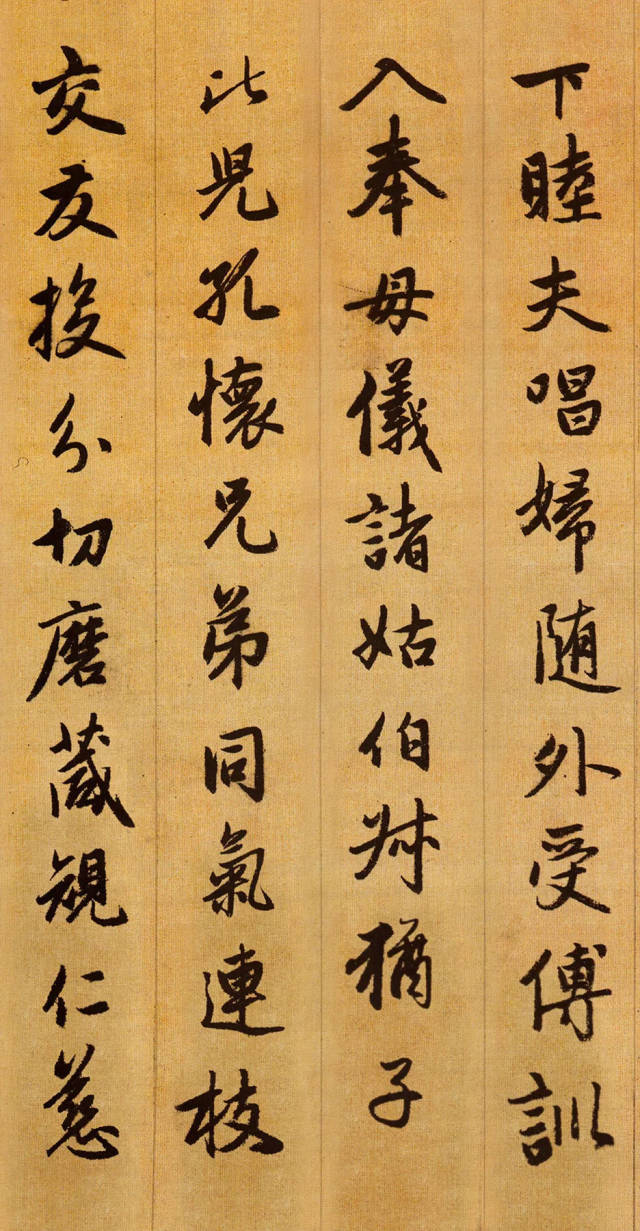 下睦夫唱婦随外受傅訓
入奉母儀諸姑伯叔猶子
比兒孔懷兄弟同氣連枝
交友投分切磨葴規仁慈